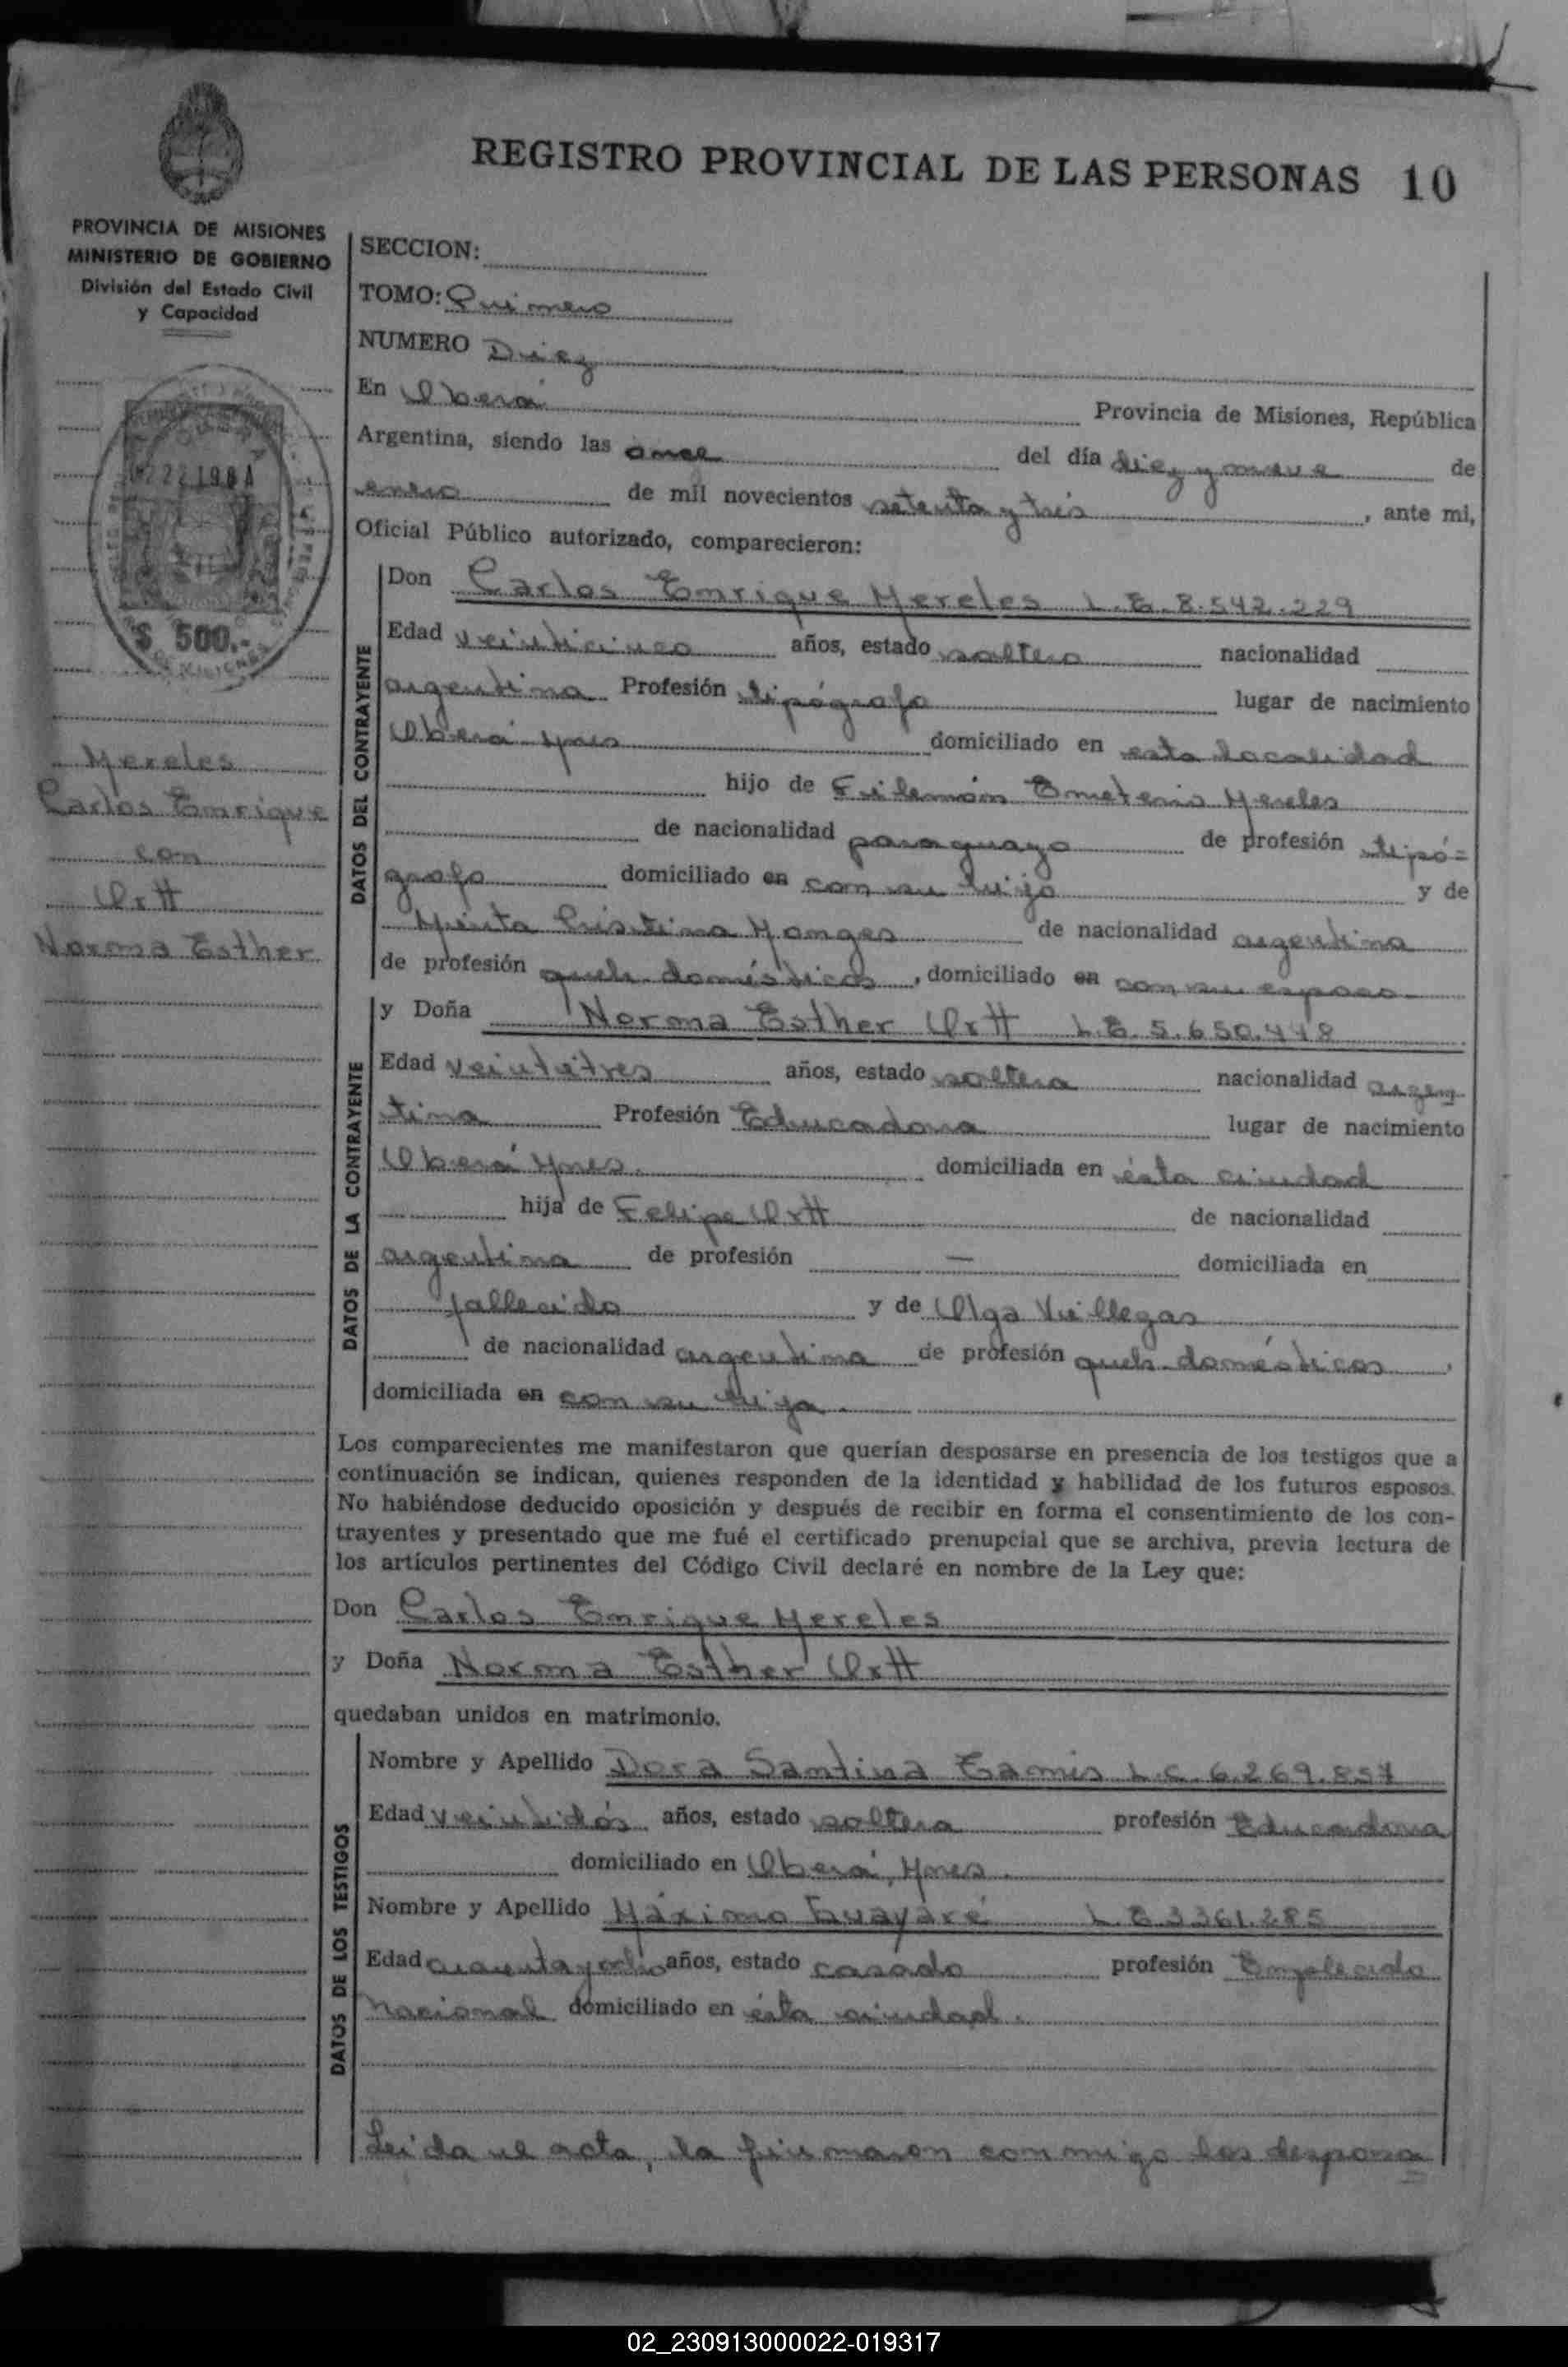 REGISTRO PROVINCIAL DE LAS PERSONAS 10
PROVINCIA DE MISIONES
MINISTERIO DE GOBIERNO
División del Estado Civil
y Capacidad
$ 500.-
Mereles
Carlos Enrique
con
Ortt
Norma Esther
SECCION:
TOMO: Primero
NUMERO Diez
En Oberá Provincia de Misiones, República
Argentina, siendo las once del día diez y nueve de
enero de mil novecientos setenta y tres, ante mi,
Oficial Público autorizado, comparecieron:
DATOS DEL CONTRAYENTE
Don Carlos Enrique Mereles L.E. 8.542.229
Edad veinticinco años, estado soltero nacionalidad
argentina Profesión tipógrafo lugar de nacimiento
Oberá Mnes domiciliado en esta localidad
hijo de Filemón Emeterio Mereles
de nacionalidad paraguayo de profesión tipó=
grafo domiciliado en con su hijo y de
Mirta Cristina Monges de nacionalidad argentina
de profesión queh. domésticos, domiciliado en con su esposo
DATOS DE LA CONTRAYENTE
y Doña Norma Esther Ortt L.E. 5.650.448
Edad veintitres años, estado soltera nacionalidad argen
tina Profesión Educadora lugar de nacimiento
Oberá Mnes. domiciliada en ésta ciudad
hija de Felipe Ortt de nacionalidad
argentina de profesión — domiciliada en
fallecido y de Olga Villegas
de nacionalidad argentina de profesión queh. domésticos,
domiciliada en con su hija.
Los comparecientes me manifestaron que querían desposarse en presencia de los testigos que a
continuación se indican, quienes responden de la identidad y habilidad de los futuros esposos.
No habiéndose deducido oposición y después de recibir en forma el consentimiento de los con-
trayentes y presentado que me fué el certificado prenupcial que se archiva, previa lectura de
los artículos pertinentes del Código Civil declaré en nombre de la Ley que:
Don Carlos Enrique Mereles
y Doña Norma Esther Ortt
quedaban unidos en matrimonio.
DATOS DE LOS TESTIGOS
Nombre y Apellido Dora Santina L.C. 6.269.857
Edad veintidós años, estado soltera profesión Educadora
domiciliado en Oberá, Mnes.
Nombre y Apellido Máximo Guayaré L.E 3361.285
Edad cuarenta y ocho años, estado casado profesión Empleado
Nacional domiciliado en ésta ciudad.
Leida el acta, la firmaron conmigo los desposa=
02_230913000022-019317